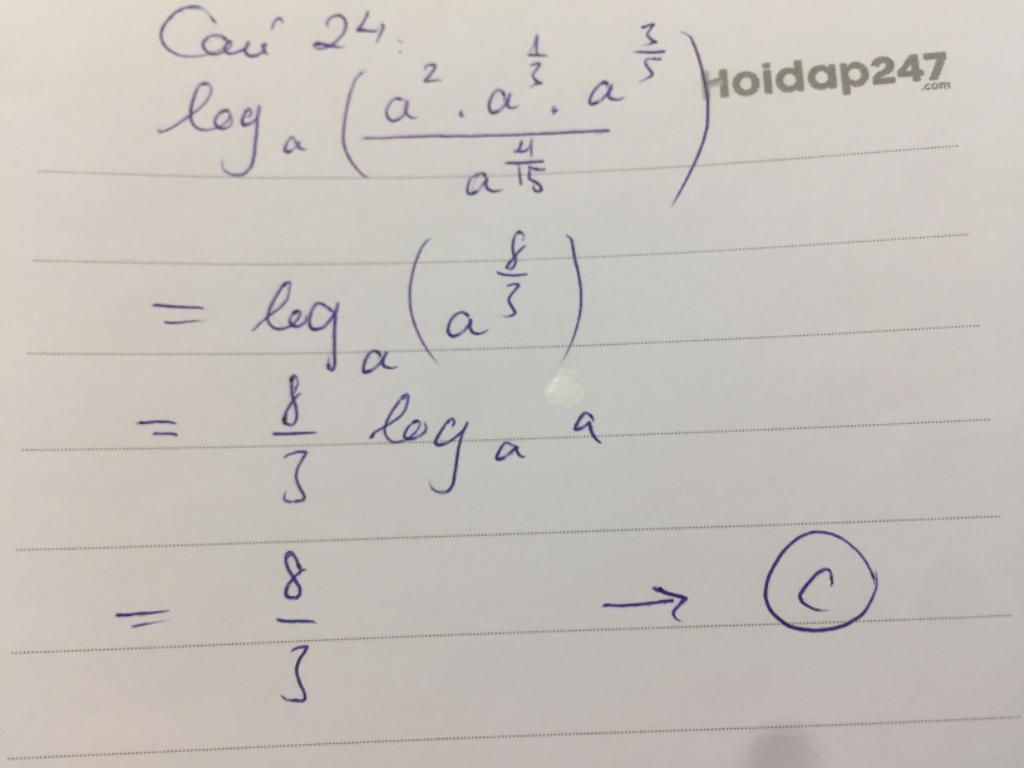 Câu 24:
log_a (a^2 . a^{1/3} . a^{3/5} / a^{4/15})
Hoidap247
.com
= log_a (a^{8/3})
= 8/3 log_a a
= 8/3 → C